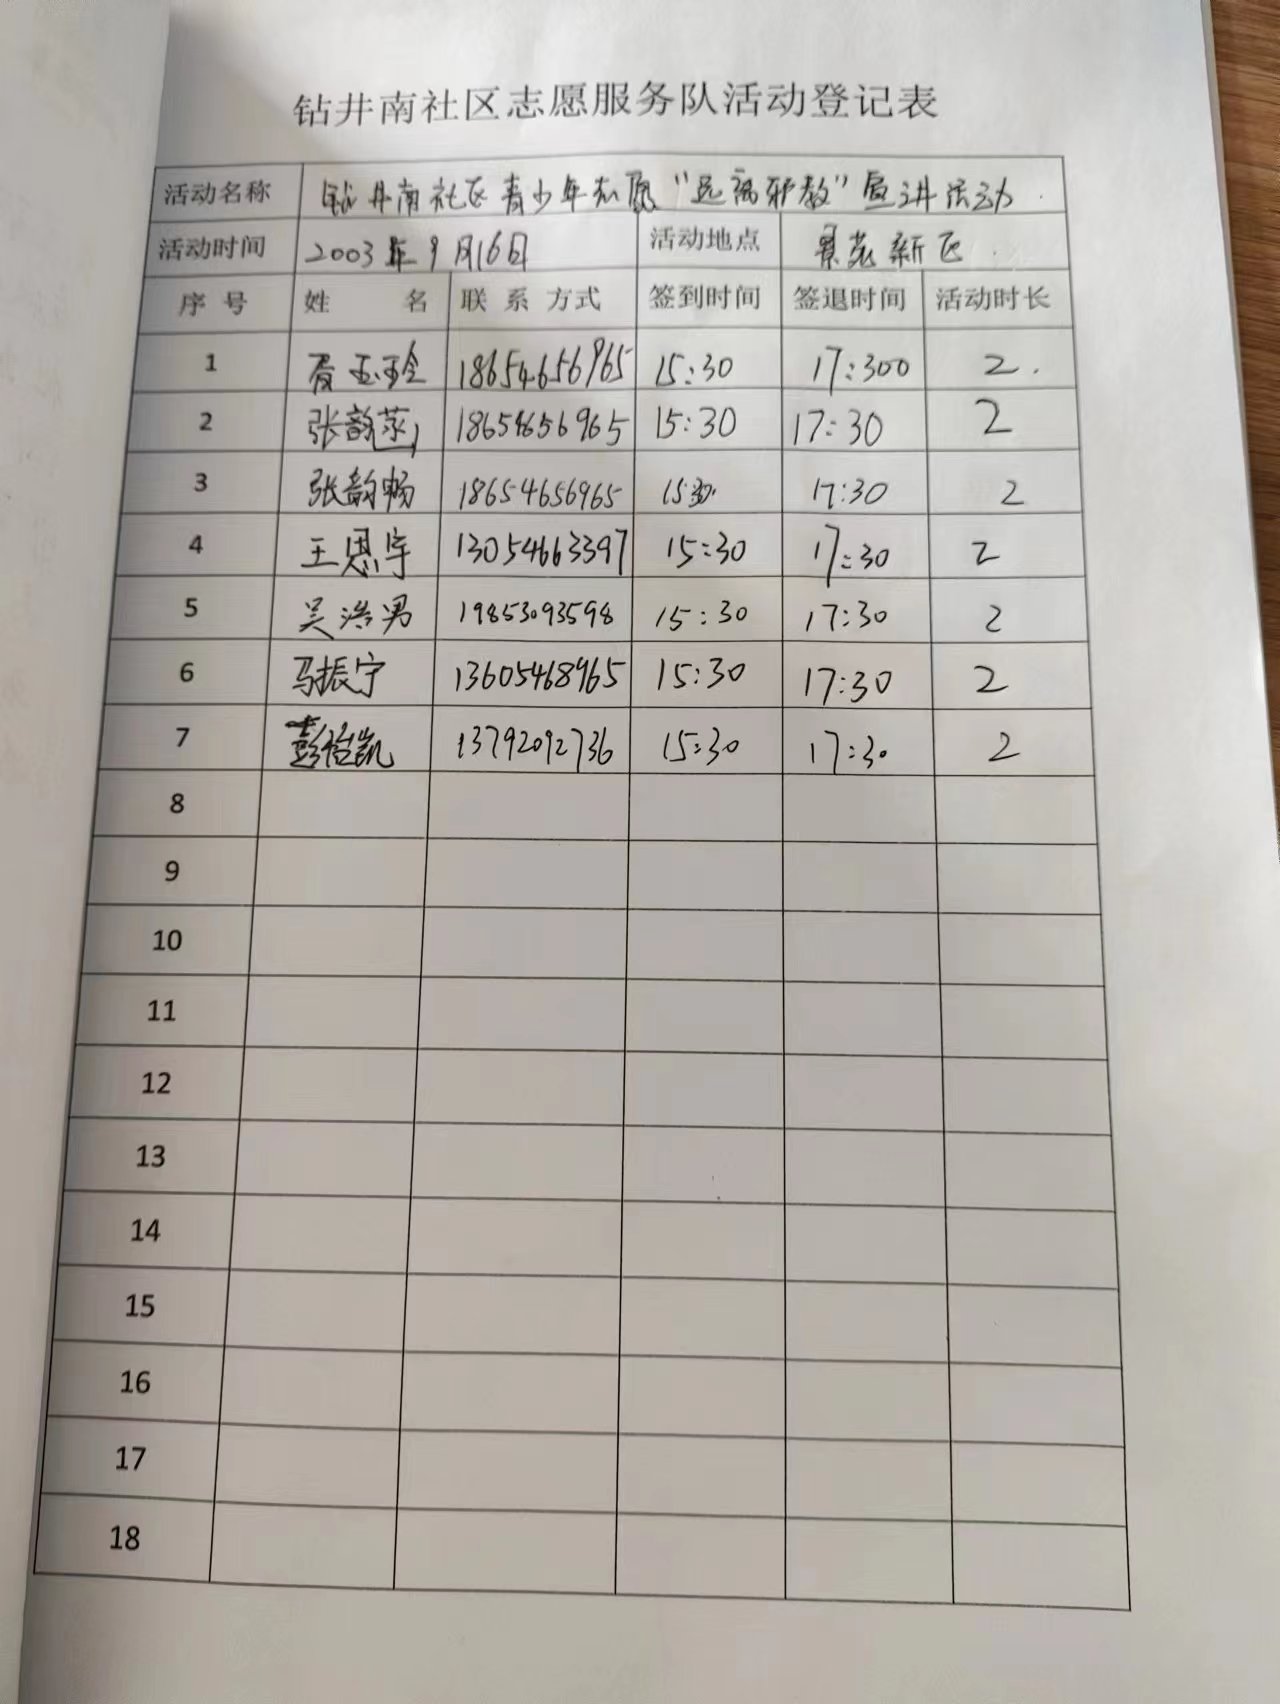 钻井南社区志愿服务队活动登记表
活动名称 钻井南社区青少年志愿“远离邪教”宣讲活动
活动时间 2003年9月16日 活动地点 景苑新区
序号 姓名 联系方式 签到时间 签退时间 活动时长
1 玉玲 18654656965 15:30 17:300 2
2 张韵 18654656965 15:30 17:30 2
3 张韵畅 18654656965 15:30 17:30 2
4 王思宇 13054663397 15:30 17:30 2
5 吴浩男 19853093598 15:30 17:30 2
6 马振宁 13605468965 15:30 17:30 2
7 彭怡凯 13792092736 15:30 17:30 2
8
9
10
11
12
13
14
15
16
17
18